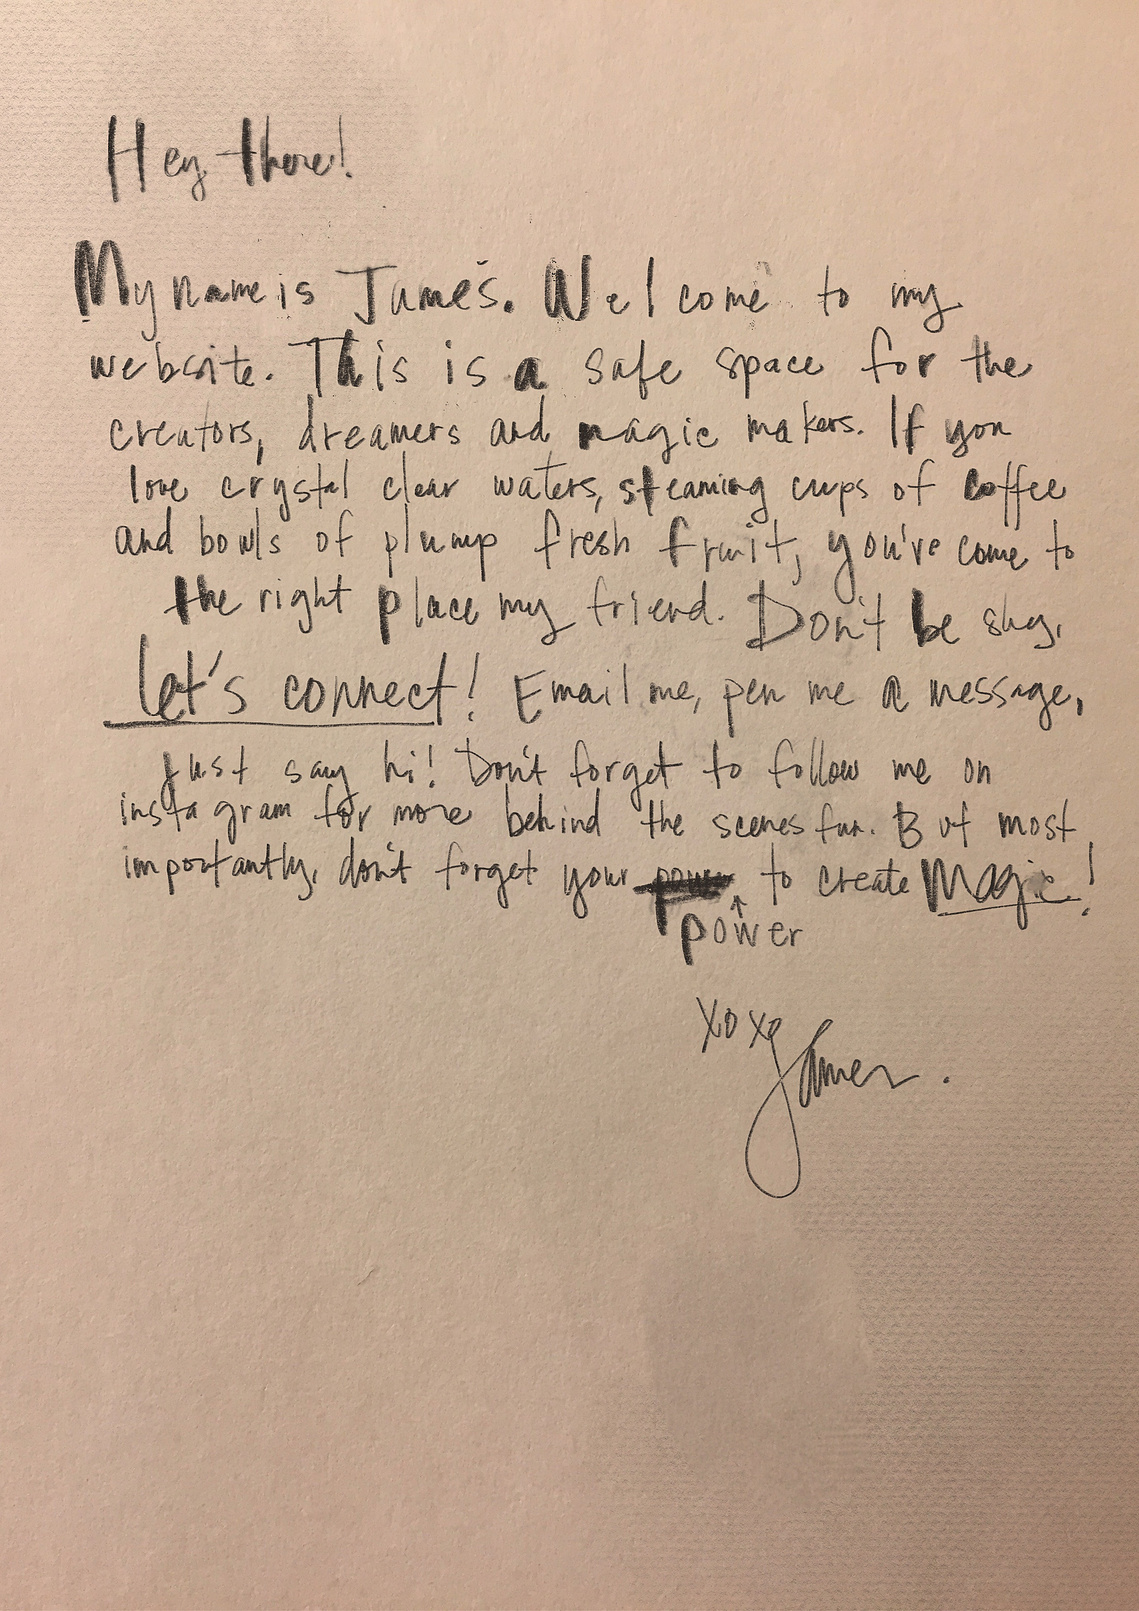 Hey there!
My name is James. Welcome to my
website. This is a safe space for the
creators, dreamers and magic makers. If you
love crystal clear waters, steaming cups of coffee
and bowls of plump fresh fruit, you've come to
the right place my friend. Don't be shy,
let's connect! Email me, pen me a message,
just say hi! Don't forget to follow me on
instagram for more behind the scenes fun. But most
importantly, don't forget your power to create Magic!
↑
power
xoxo
James.